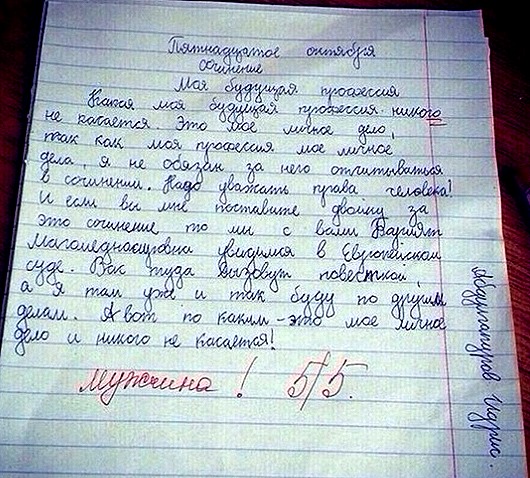 Пятнадцатое октября
сочинение
Моя будущая профессия
Какая моя будущая профессия никого
не касается. Это мое личное дело,
так как моя профессия мое личное
дела, я не обязан за него отчитываться
в сочинении. Надо уважать права человека!
И если вы мне поставите двойку за
это сочинение то мы с вами Вазипят
Магомеднасировна увидимся в Европейском
суде. Вас туда вызовут повесткой,
а я там уже и так буду по другим
делам. А вот по каким - это мое личное
дело и никого не касается!
мужчина! 5/5.
Абдулгапуров Идрис.